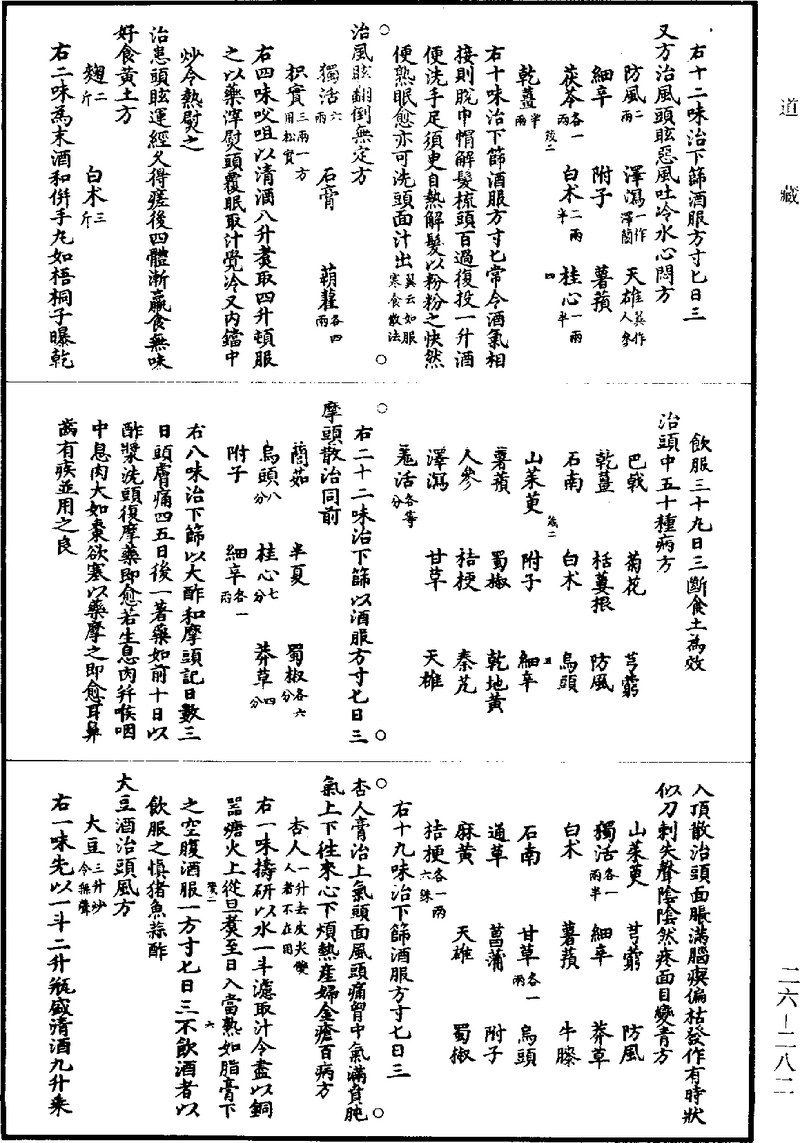 道藏
右十二味治下篩酒服方寸匕日三
又方治風頭眩惡風吐冷水心悶方
防風二兩 澤瀉一作澤蘭 天雄冀作人參
細辛 附子 薯蕷
茯苓各一兩 白术二兩半 桂心一兩半
乾薑半兩
右十味治下篩酒服方寸匕常令酒氣相
接則脫巾帽解髮梳頭百過復投一升酒
便洗手足須臾自熱解髮以粉粉之快然
便熟眠愈亦可洗頭面汁出冀云如服寒食散法
治風眩翻倒無定方
獨活六兩 石膏 蒴藋各四兩
枳實三兩一方用松實
右四味㕮咀以清酒八升煑取四升頓服
之以藥滓熨頭覆眠取汁覺冷又內鐺中
炒令熱熨之
治患頭眩運經久得瘥後四體漸羸食無味
好食黃土方
麴二斤 白术三斤
右二味為末酒和併手丸如梧桐子曝乾
飲服三十九日三斷食土為效
治頭中五十種病方
巴戟 菊花 芎藭
乾薑 栝蔞根 防風
石南 白术 烏頭
山茱萸 附子 細辛
薯蕷 蜀椒 乾地黃
人參 桔梗 秦艽
澤瀉 甘草 天雄
羗活各等分
右二十二味治下篩以酒服方寸七日三
摩頭散治同前
蕳茹 半夏 蜀椒各六分
烏頭八分 桂心七分 莽草四分
附子 細辛各一兩
右八味治下篩以大酢和摩頭記日數三
日頭膚痛四五日後一著藥如前十日以
酢漿洗頭復摩藥即愈若生息肉并喉咽
中息肉大如棗欲塞以藥摩之即愈耳鼻
齒有疾並用之良
入頂散治頭面脹滿腦瘈偏枯發作有時狀
似刀刺失聲陰陰然疼面目變青方
山茱萸 芎藭 防風
獨活各一兩半 細辛 莽草
白术 薯蕷 牛膝
石南 甘草各一兩 烏頭
通草 菖蒲 附子
麻黃 天雄 蜀椒
桔梗各一兩六銖
右十九味治下篩酒服方寸七日三
杏人膏治上氣頭面風頭痛胷中氣滿賁肫
氣上下徃來心下煩熱產婦金瘡百病方
杏人一升去皮尖雙人者不在用
右一味擣研以水一斗濾取汁令盡以銅
器塘火上從旦煑至日入當熟如脂膏下
之空腹酒服一方寸七日三不飲酒者以
飲服之慎猪魚蒜酢
大豆酒治頭風方
大豆三升炒令無聲
右一味先以一斗二升瓶盛清酒九升來
二六－二八二